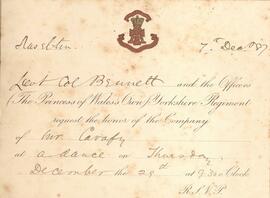 7th Dec
Lieut Col Bennett and the Officers
(The Princess of Wales's Own) Yorkshire Regiment
request the honor of the Company
of Mr. Cavafy
at a dance on Thursday
December the 29th at 9.30 o'Clock
R.S.V.P.